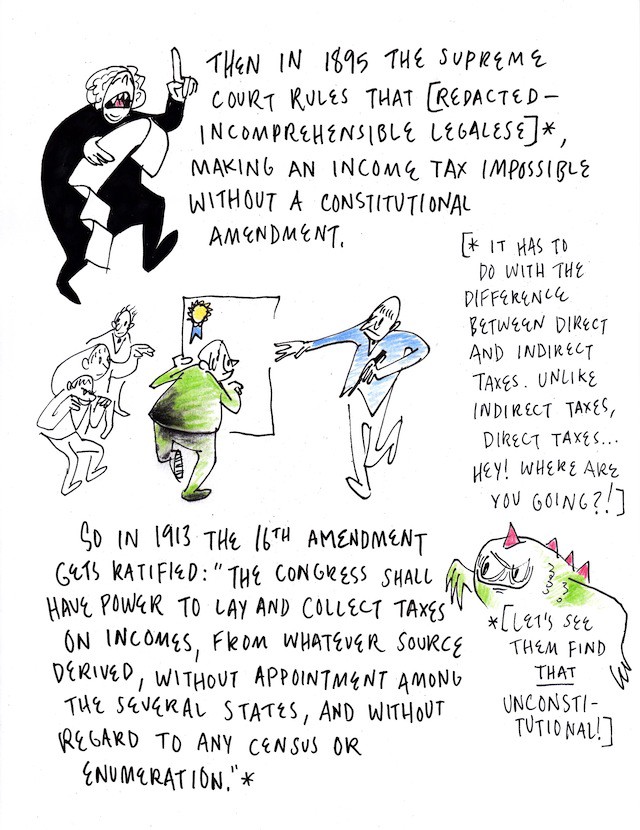 THEN IN 1895 THE SUPREME
COURT RULES THAT [REDACTED—
INCOMPREHENSIBLE LEGALESE]*,
MAKING AN INCOME TAX IMPOSSIBLE
WITHOUT A CONSTITUTIONAL
AMENDMENT.
[* IT HAS TO
DO WITH THE
DIFFERENCE
BETWEEN DIRECT
AND INDIRECT
TAXES. UNLIKE
INDIRECT TAXES,
DIRECT TAXES...
HEY! WHERE ARE
YOU GOING?!]
SO IN 1913 THE 16TH AMENDMENT
GETS RATIFIED: "THE CONGRESS SHALL
HAVE POWER TO LAY AND COLLECT TAXES
ON INCOMES, FROM WHATEVER SOURCE
DERIVED, WITHOUT APPOINTMENT AMONG
THE SEVERAL STATES, AND WITHOUT
REGARD TO ANY CENSUS OR
ENUMERATION."*
*[LET'S SEE
THEM FIND
THAT
UNCONSTI-
TUTIONAL!]